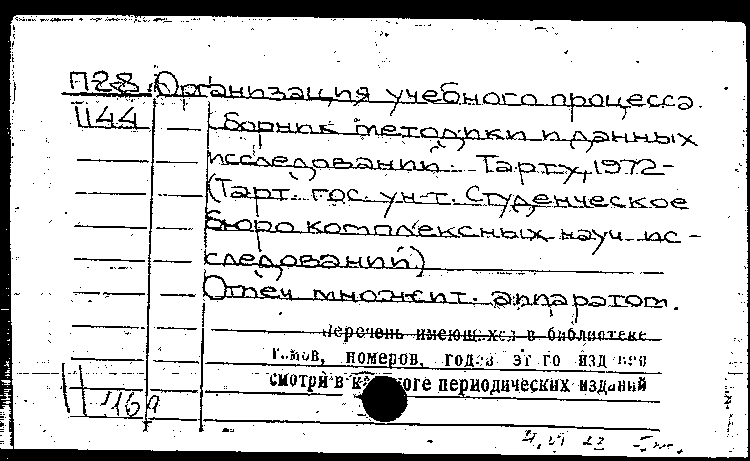 П28 Организация учебного процесса.
1144 Сборник методики и данных
исследований. Тарту, 1972-
(Тарт. гос. ун-т. Студенческое
бюро комплексных науч. ис-
следований)
Отпеч. множит. аппаратом.
Перечень имеющихся в библиотеке
томов, номеров, годов этого издания
смотри в каталоге периодических изданий
Н 1169